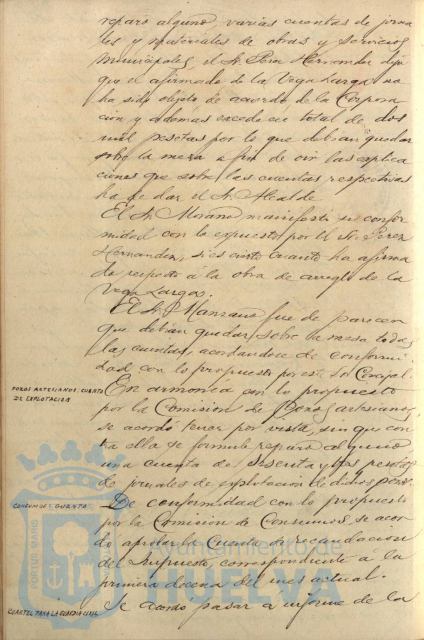 reparo alguno, varias cuentas de jorna
les y materiales de obras y servicios
municipales, el Sr. Perez Hernandez dijo
que el afirmado de la Vega Larga no
ha sido objeto de acuerdo de la Corpora
cion y ademas excede su total de dos
mil pesetas por lo que debian quedar
sobre la mesa a fin de oir las esplica
ciones que sobre las cuentas respectivas
ha de dar el Sr. Alcalde.
El Sr. Moreno manifestó su confor
midad con lo expuesto por el Sr. Perez
Hernandez, si es cierto cuanto ha afirma
do respecto á la obra de arreglo de la
Vega Larga.
El Sr. Manzano fue de parecer
que debian quedar sobre la mesa todas
las cuentas, acordandose de conformi
dad con lo propuesto por este Sr. Concejal.
POZOS ARTESIANOS. CUENTA
DE EXPLOTACION
En armonía con lo propuesto
por la Comision de Pozos artesianos,
se acordó tener por vista, sin que con
tra ella se formule reparo alguno
una cuenta de sesenta y tres pesetas
de jornales de esplotacion de dichos pozos.
CONSUMOS: CUENTA
De conformidad con lo propuesto
por la Comision de Consumos, se acor
dó aprobar la Cuenta de recaudacion
del Impuesto, correspondiente á la
primera decena del mes actual.
CUARTEL PARA LA GUARDIA CIVIL
Se acordó pasar a informe de la
PORTUS MARIS
Ayuntamiento de
HUELVA